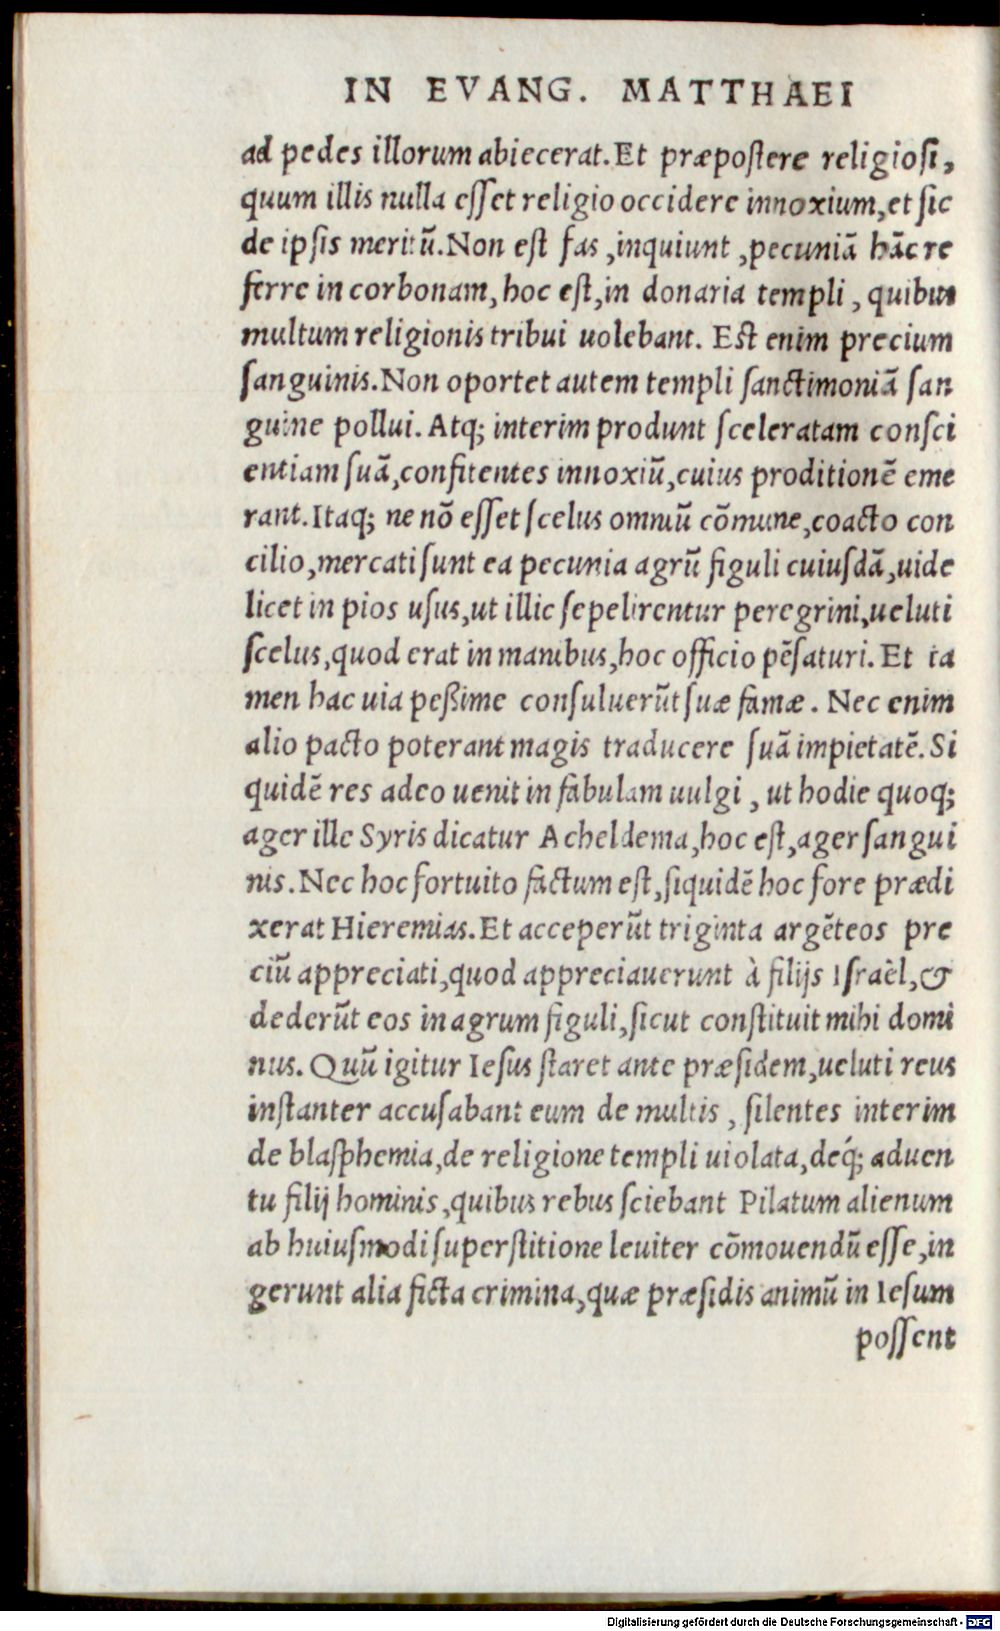 IN EVANG. MATTHAEI
ad pedes illorum abiecerat. Et præpostere religiosi,
quum illis nulla esset religio occidere innoxium, et sic
de ipsis meritū. Non est fas, inquiunt, pecuniā hāc re
ferre in corbonam, hoc est, in donaria templi, quibus
multum religionis tribui uolebant. Est enim precium
sanguinis. Non oportet autem templi sanctimoniā san
guine pollui. Atq; interim produnt sceleratam consci
entiam suā, confitentes innoxiū, cuius proditionē eme
rant. Itaq; ne nō esset scelus omniū cōmune, coacto con
cilio, mercati sunt ea pecunia agrū figuli cuiusdā, uide
licet in pios usus, ut illic sepelirentur peregrini, ueluti
scelus, quod erat in manibus, hoc officio pēsaturi. Et ta
men hac uia peßime consuluerūt suæ famæ. Nec enim
alio pacto poterant magis traducere suā impietatē. Si
quidē res adeo uenit in fabulam uulgi, ut hodie quoq;
ager ille Syris dicatur Acheldema, hoc est, ager sangui
nis. Nec hoc fortuito factum est, siquidē hoc fore prædi
xerat Hieremias. Et acceperūt triginta argēteos pre
ciū appreciati, quod appreciauerunt à filijs Israèl, &
dederūt eos in agrum figuli, sicut constituit mihi domi
nus. Quū igitur Iesus staret ante præsidem, ueluti reus
instanter accusabant eum de multis, silentes interim
de blasphemia, de religione templi uiolata, deq́; aduen
tu filij hominis, quibus rebus sciebant Pilatum alienum
ab huiusmodi superstitione leuiter cōmouendū esse, in
gerunt alia ficta crimina, quæ præsidis animū in Iesum
possent
Digitalisierung gefördert durch die Deutsche Forschungsgemeinschaft - DFG